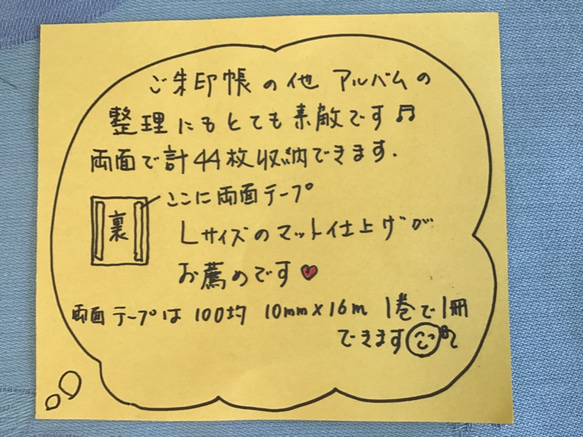 ご朱印帳の他 アルバムの
整理にもとても素敵です♬
両面で計44枚収納できます.
ここに両面テープ
裏
Lサイズのマット仕上げが
お薦めです♥
両面テープは 100均 10mm×16m 1巻で1冊
できます